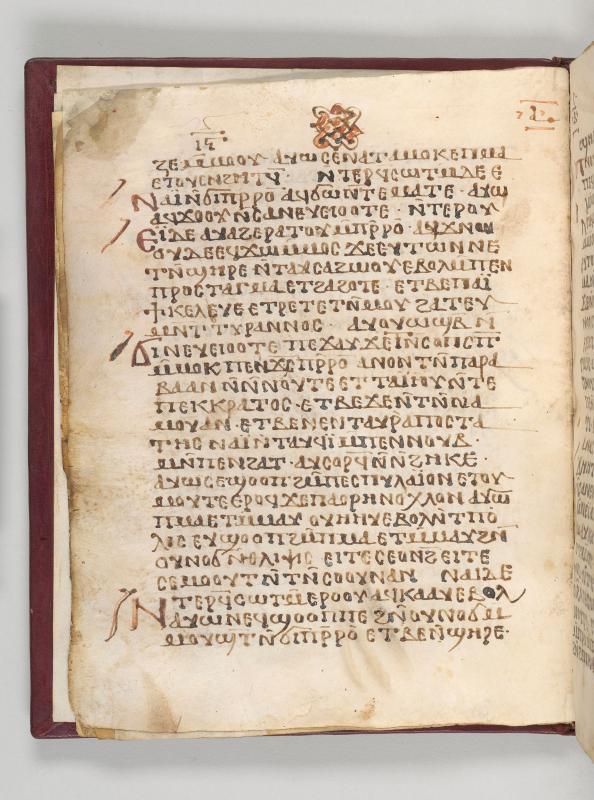 ⲓ̅ⲅ̅
ϩⲉⲙⲙⲟⲟⲩ· ⲁⲩⲱ ⲥⲉⲛⲁⲧⲁⲙⲟⲕ ⲉⲡⲙⲁ
ⲉⲧⲟⲩⲛϩⲏⲧϥ̄· ⲛ̄ⲧⲉⲣϥ̄ⲥⲱⲧⲙ ⲇⲉ ⲉ
ⲛⲁⲓ ⲛ̄ϭⲓ ⲡⲣ̄ⲣⲟ ⲁϥϭⲱⲛ̄ⲧ ⲉⲙⲁⲧⲉ· ⲁⲩⲱ
ⲁϥϫⲟⲟⲩ ⲛ̄ⲥⲁ ⲛⲉⲩⲉⲓⲟⲟⲧⲉ· ⲛ̄ⲧⲉⲣⲟⲩ
ⲉⲓ ⲇⲉ ⲁⲩⲁϩⲉⲣⲁⲧⲟⲩ ⲙ̄ⲡⲣ̄ⲣⲟ· ⲁϥϫⲛⲟⲩ
ⲟⲩ ⲇⲉ ⲉϥϫⲱ ⲙ̄ⲙⲟⲥ ϫⲉ ⲉⲩⲧⲱⲛ ⲛⲉ
ⲧⲛ̄ϣⲏⲣⲉ ⲛ̄ⲧⲁⲩⲥⲁϩⲱⲟⲩ ⲉⲃⲟⲗ ⲙ̄ⲡⲉⲛ
ⲡⲣⲟⲥⲧⲁⲅⲙⲁ ⲉⲧϩⲁϩⲟⲧⲉ· ⲉⲧⲃⲉ ⲡⲁⲓ̈
ϯⲕⲉⲗⲉⲩⲉ ⲉⲧⲣⲉⲧⲉⲧⲛ̄ⲙⲟⲩ ϩⲁ ⲧⲉⲩ
ⲙⲛ̄ⲧⲧⲩⲣⲁⲛⲛⲟⲥ· ⲁⲩⲟⲩⲱϣⲃ ⲛ̄
ϭⲓ ⲛⲉⲩⲉⲓⲟⲟⲧⲉ ⲡⲉϫⲁⲩ ϫⲉ ⲧⲛ̄ⲥⲟⲡⲥ̄ⲡ̄
ⲙ̄ⲙⲟⲕ ⲡⲉⲛϫⲥ̄ ⲡⲣ̄ⲣⲟ ⲁⲛⲟⲛ ⲧⲛ̄ⲡⲁⲣⲁ
ⲃⲁ ⲁⲛ ⲛ̄ⲛ̄ⲛⲟⲩⲧⲉ ⲉⲧⲧⲁⲓ̈ⲏⲩ ⲛ̄ⲧⲉ
ⲡⲉⲕⲕⲣⲁⲧⲟⲥ· ⲉⲧⲃⲉ ϫⲉ ⲛ̄ⲧⲛ̄ⲛⲁ
ⲙⲟⲩ ⲁⲛ· ⲉⲧⲃⲉ ⲛⲉⲛⲧⲁⲩⲣ̄ⲁⲡⲟⲥⲧⲁ
ⲧⲏⲥ ⲛⲁⲓ ⲛ̄ⲧⲁⲩϥⲓ ⲙ̄ⲡⲉⲛⲛⲟⲩⲃ·
ⲙⲛ̄ ⲡⲉⲛϩⲁⲧ· ⲁⲩⲥⲟⲣϥ̄ ⲛ̄ⲛ̄ϩⲏⲕⲉ·
ⲁⲩⲱ ⲥⲉϣⲟⲟⲡ ϩⲙ̄ ⲡⲉⲥⲡⲩⲗⲁⲓⲟⲛ ⲉⲧⲟⲩ
ⲙⲟⲩⲧⲉ ⲉⲣⲟϥ ϫⲉ ⲡⲁⲟⲣⲏⲛⲟⲭⲗⲟⲛ ⲁⲩⲱ
ⲡⲙⲁ ⲉⲧⲙ̄ⲙⲁⲩ ⲟⲩⲏⲩ ⲉⲃⲟⲗ ⲛ̄ⲧⲡⲟ
ⲗⲓⲥ ⲉⲩϣⲟⲟⲡ ϩⲙ̄ ⲡⲙⲁ ⲉⲧⲙ̄ⲙⲁⲩ ϩⲛ̄
ⲟⲩⲛⲟϭ ⲛ̄ⲑⲗⲓⲯⲓⲥ ⲉⲓⲧⲉ ⲥⲉⲟⲛϩ ⲉⲓⲧⲉ
ⲥⲉⲙⲟⲟⲩⲧ ⲛ̄ⲧⲛ̄ⲥⲟⲟⲩⲛ ⲁⲛ ⲛⲁⲓ ⲇⲉ
ⲛ̄ⲧⲉⲣϥ̄ⲥⲱⲧⲙ̄ ⲉⲣⲟⲟⲩ ⲁϥⲕⲁⲁⲩ ⲉⲃⲟⲗ
ⲁⲩⲱ ⲛⲉϥϣⲟⲟⲡ ⲡⲉ ϩⲛ̄ ⲟⲩⲛⲟϭ ⲙ̄
ⲙⲟⲩϣⲧ ⲛ̄ϭⲓ ⲡⲣ̄ⲣⲟ ⲉⲧⲃⲉ ⲛ̄ϣⲏⲣⲉ·